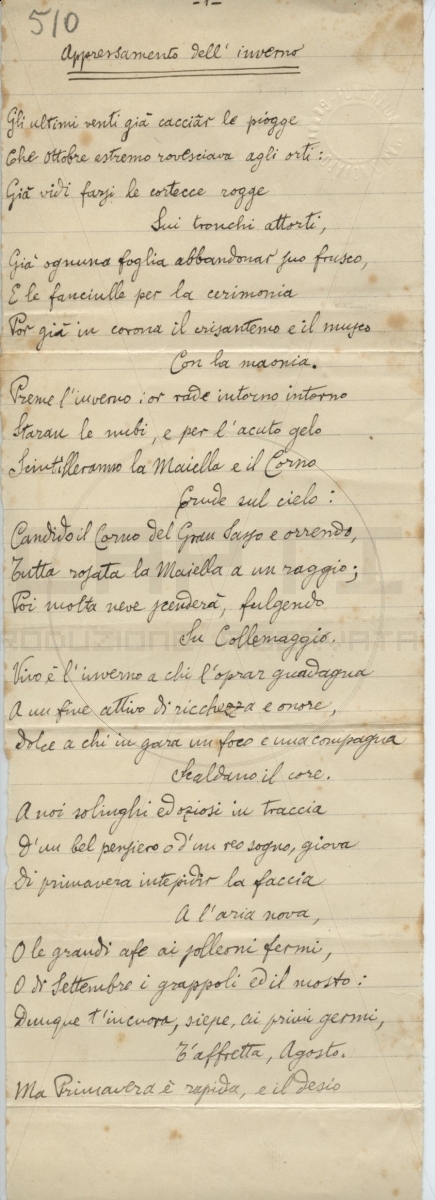 -1-
510
Appressamento dell' inverno
Gli ultimi venti già cacciâr le piogge
Che Ottobre estremo rovesciava agli orti:
Già vidi farsi le cortecce rogge
Sui tronchi attorti,
Già ognuna foglia abbandonar suo frusco,
E le fanciulle per la cerimonia
Por già in corona il crisantemo e il musco
Con la maonia.
Preme l'inverno: or rade intorno intorno
Staran le nubi, e per l'acuto gelo
Scintilleranno la Maiella e il Corno
Crude sul cielo:
Candido il Corno del Gran Sasso e orrendo,
Tutta rosata la Maiella a un raggio;
Poi molta neve scenderà, fulgendo
Su Collemaggio.
Vivo è l'inverno a chi l'oprar guadagna
A un fine attivo di ricchezza e onore,
Dolce a chi in gara un foco e una compagna
Scaldano il core.
A noi solinghi ed oziosi in traccia
D'un bel pensiero o d'un reo sogno, giova
Di primavera intepidir la faccia
A l'aria nova,
O le grandi afe ai solleoni fermi,
O di Settembre i grappoli ed il mosto:
Dunque t'incuora, siepe, ai primi germi,
T'affretta, Agosto.
Ma Primavera è rapida, e il desio